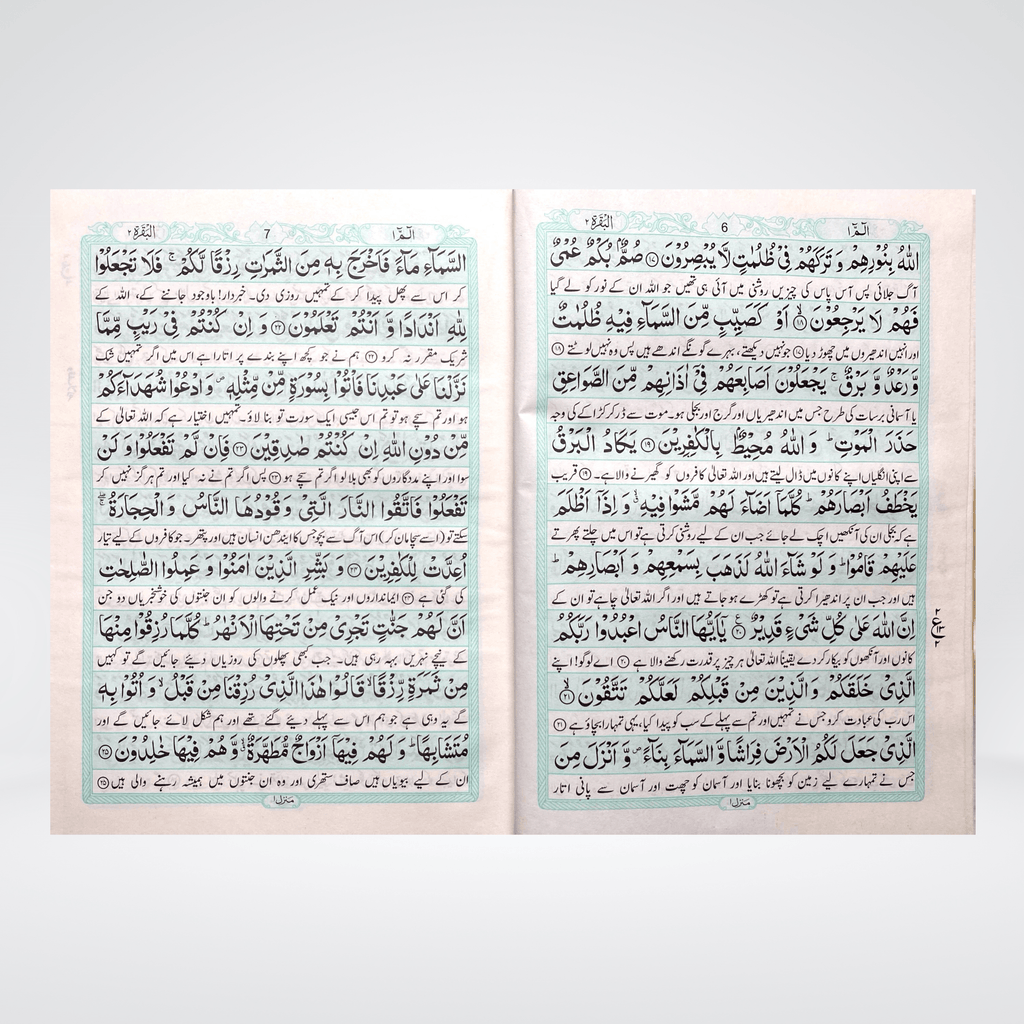 الٓمّٓ ١
6
البقرة ٢
اللّٰهُ بِنُوْرِهِمْ وَ تَرَكَهُمْ فِیْ ظُلُمٰتٍ لَّا یُبْصِرُوْنَ ۝١٧ صُمٌّۢ بُكْمٌ عُمْیٌ
آگ جلائی پس آس پاس کی چیزیں روشنی میں آئی ہی تھیں جو اللہ ان کے نور کو لے گیا
فَهُمْ لَا یَرْجِعُوْنَ ۝١٨ۙ اَوْ كَصَیِّبٍ مِّنَ السَّمَآءِ فِیْهِ ظُلُمٰتٌ
اور انہیں اندھیروں میں چھوڑ دیا ۝١٧ جو نہیں دیکھتے، بہرے گونگے اندھے ہیں پس وہ نہیں لوٹتے ۝١٨
وَّ رَعْدٌ وَّ بَرْقٌ ۚ یَجْعَلُوْنَ اَصَابِعَهُمْ فِیْۤ اٰذَانِهِمْ مِّنَ الصَّوَاعِقِ
یا آسمانی برسات کی طرح جس میں اندھیریاں اور گرج اور بجلی ہو۔ موت سے ڈر کر کڑاکے کی وجہ
حَذَرَ الْمَوْتِ ؕ وَ اللّٰهُ مُحِیْطٌۢ بِالْكٰفِرِیْنَ ۝١٩ یَكَادُ الْبَرْقُ
سے اپنی انگلیاں اپنے کانوں میں ڈال لیتے ہیں اور اللہ تعالیٰ کافروں کو گھیرنے والا ہے۔ ۝١٩ قریب
یَخْطَفُ اَبْصَارَهُمْ ؕ كُلَّمَاۤ اَضَآءَ لَهُمْ مَّشَوْا فِیْهِ ۙۗ وَ اِذَاۤ اَظْلَمَ
ہے کہ بجلی ان کی آنکھیں اچک لے جائے جب ان کے لیے روشنی کرتی ہے تو اس میں چلتے پھرتے
عَلَیْهِمْ قَامُوْا ؕ وَ لَوْ شَآءَ اللّٰهُ لَذَهَبَ بِسَمْعِهِمْ وَ اَبْصَارِهِمْ ؕ
ہیں اور جب ان پر اندھیرا کرتی ہے تو کھڑے ہو جاتے ہیں اور اگر اللہ تعالیٰ چاہے تو ان کے
اِنَّ اللّٰهَ عَلٰی كُلِّ شَیْءٍ قَدِیْرٌ ۝٢٠ۧ یٰۤاَیُّهَا النَّاسُ اعْبُدُوْا رَبَّكُمُ
کانوں اور آنکھوں کو بیکار کردے یقیناً اللہ تعالیٰ ہر چیز پر قدرت رکھنے والا ہے ۝٢٠ اے لوگو! اپنے
الَّذِیْ خَلَقَكُمْ وَ الَّذِیْنَ مِنْ قَبْلِكُمْ لَعَلَّكُمْ تَتَّقُوْنَ ۝٢١ۙ
اس رب کی عبادت کرو جس نے تمہیں اور تم سے پہلے کے سب کو پیدا کیا، یہی تمہارا بچاؤ ہے ۝٢١
الَّذِیْ جَعَلَ لَكُمُ الْاَرْضَ فِرَاشًا وَّ السَّمَآءَ بِنَآءً ۪ وَّ اَنْزَلَ مِنَ
جس نے تمہارے لیے زمین کو بچھونا بنایا اور آسمان کو چھت اور آسمان سے پانی اتار
٢
ع
١٣
٢
منزل ١
الٓمّٓ ١
7
البقرة ٢
السَّمَآءِ مَآءً فَاَخْرَجَ بِهٖ مِنَ الثَّمَرٰتِ رِزْقًا لَّكُمْ ۚ فَلَا تَجْعَلُوْا
کر اس سے پھل پیدا کر کے تمہیں روزی دی۔ خبردار! باوجود جاننے کے، اللہ کے
لِلّٰهِ اَنْدَادًا وَّ اَنْتُمْ تَعْلَمُوْنَ ۝٢٢ وَ اِنْ كُنْتُمْ فِیْ رَیْبٍ مِّمَّا
شریک مقرر نہ کرو ۝٢٢ ہم نے جو کچھ اپنے بندے پر اتارا ہے اس میں اگر تمہیں شک
نَزَّلْنَا عَلٰی عَبْدِنَا فَاْتُوْا بِسُوْرَةٍ مِّنْ مِّثْلِهٖ ۪ وَ ادْعُوْا شُهَدَآءَكُمْ
ہو اور تم سچے ہو تو تم اس جیسی ایک سورت تو بنا لاؤ۔ تمہیں اختیار ہے کہ اللہ تعالیٰ کے
مِّنْ دُوْنِ اللّٰهِ اِنْ كُنْتُمْ صٰدِقِیْنَ ۝٢٣ فَاِنْ لَّمْ تَفْعَلُوْا وَ لَنْ
سوا اور اپنے مددگاروں کو بھی بلا لو اگر تم سچے ہو ۝٢٣ پس اگر تم نے نہ کیا اور تم ہرگز نہیں کر
تَفْعَلُوْا فَاتَّقُوا النَّارَ الَّتِیْ وَ قُوْدُهَا النَّاسُ وَ الْحِجَارَةُ ۖۚ
سکتے تو (اسے سچا مان کر) اس آگ سے بچو جس کا ایندھن انسان ہیں اور پتھر۔ جو کافروں کے لیے تیار
اُعِدَّتْ لِلْكٰفِرِیْنَ ۝٢٤ وَ بَشِّرِ الَّذِیْنَ اٰمَنُوْا وَ عَمِلُوا الصّٰلِحٰتِ
کی گئی ہے ۝٢٤ ایمانداروں اور نیک عمل کرنے والوں کو ان جنتوں کی خوشخبریاں دو جن
اَنَّ لَهُمْ جَنّٰتٍ تَجْرِیْ مِنْ تَحْتِهَا الْاَنْهٰرُ ؕ كُلَّمَا رُزِقُوْا مِنْهَا
کے نیچے نہریں بہہ رہی ہیں۔ جب کبھی پھلوں کی روزیاں دیئے جائیں گے تو کہیں
مِنْ ثَمَرَةٍ رِّزْقًا ۙ قَالُوْا هٰذَا الَّذِیْ رُزِقْنَا مِنْ قَبْلُ ۙ وَ اُتُوْا بِهٖ
گے یہ وہی ہے جو ہم اس سے پہلے دیئے گئے تھے اور ہم شکل لائے جائیں گے اور
مُتَشَابِهًا ؕ وَ لَهُمْ فِیْهَاۤ اَزْوَاجٌ مُّطَهَّرَةٌ ۙۗ وَّ هُمْ فِیْهَا خٰلِدُوْنَ ۝٢٥
ان کے لیے بیویاں ہیں صاف ستھری اور وہ ان جنتوں میں ہمیشہ رہنے والی ہیں ۝٢٥
منزل ١